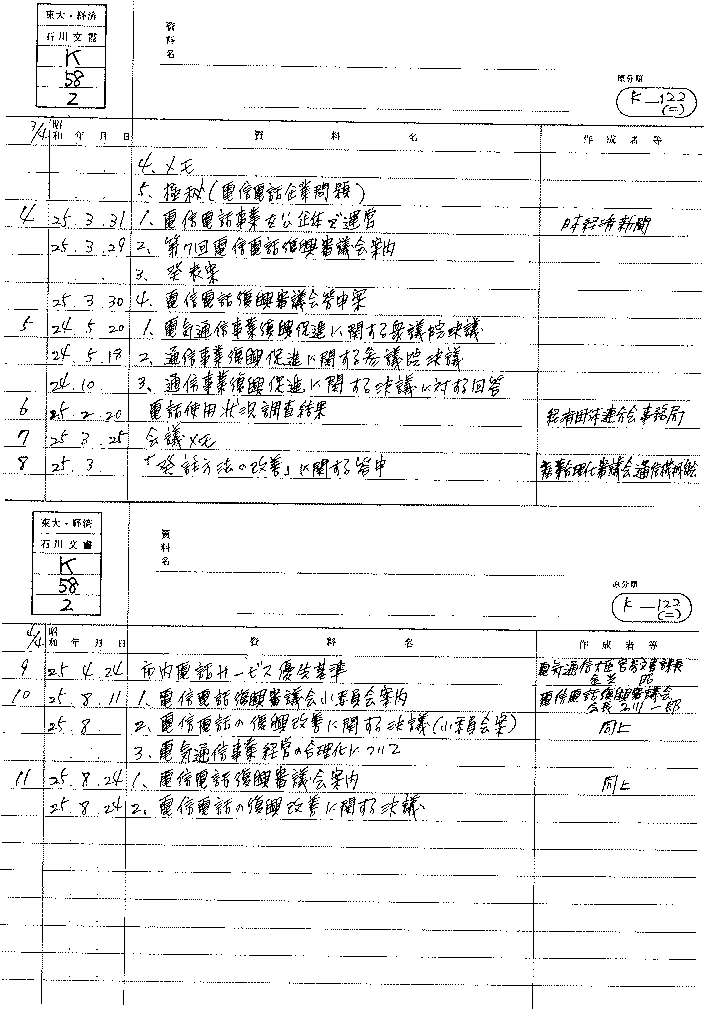 東大・経済
石川文書
K
58
2
資料名
原分類
K-122
(二)
3/4 昭和 年 月 日 資料名 作成者等
4、メモ
5、極秘(電信電話企業問題)
4 25.3.31 1、電信電話事業を公企体で運営 日本経済新聞
25.3.29 2、第7回電信電話復興審議会案内
3、発表案
25.3.30 4、電信電話復興審議会答申案
5 24.5.20 1、電気通信事業復興促進に関する衆議院決議
24.5.18 2、通信事業復興促進に関する参議院決議
24.10 3、通信事業復興促進に関する決議に対する回答
6 25.2.20 電話使用状況調査結果 経済団体連合会事務局
7 25.3.25 会議メモ
8 25.3. 「発註方法の改善」に関する答申 産業合理化審議会通信機部会
東大・経済
石川文書
K
58
2
資料名
原分類
K-122
(二)
4/4 昭和 年 月 日 資料名 作成者等
9 25.4.24 市内電話サービス優先基準 電気通信大臣官房審議長
10 25.8.11 1、電信電話復興審議会小委員会案内 電信電話復興審議会
会長 石川一郎
25.8 2、電信電話の復興改善に関する決議(小委員会案) 同上
3、電気通信事業経営の合理化について
11 25.8.24 1、電信電話復興審議会案内 同上
25.8.24 2、電信電話の復興改善に関する決議